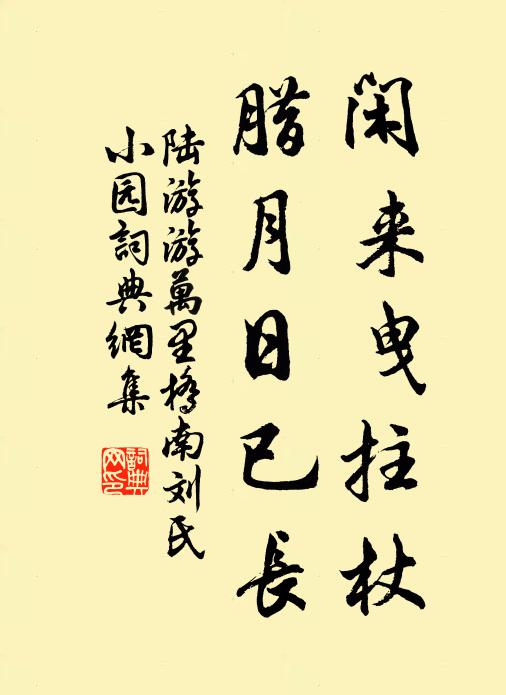 闲来曳拄杖
腊月日已长
陆游游萬里桥南刘氏
小园詞典網集
詞典
网印